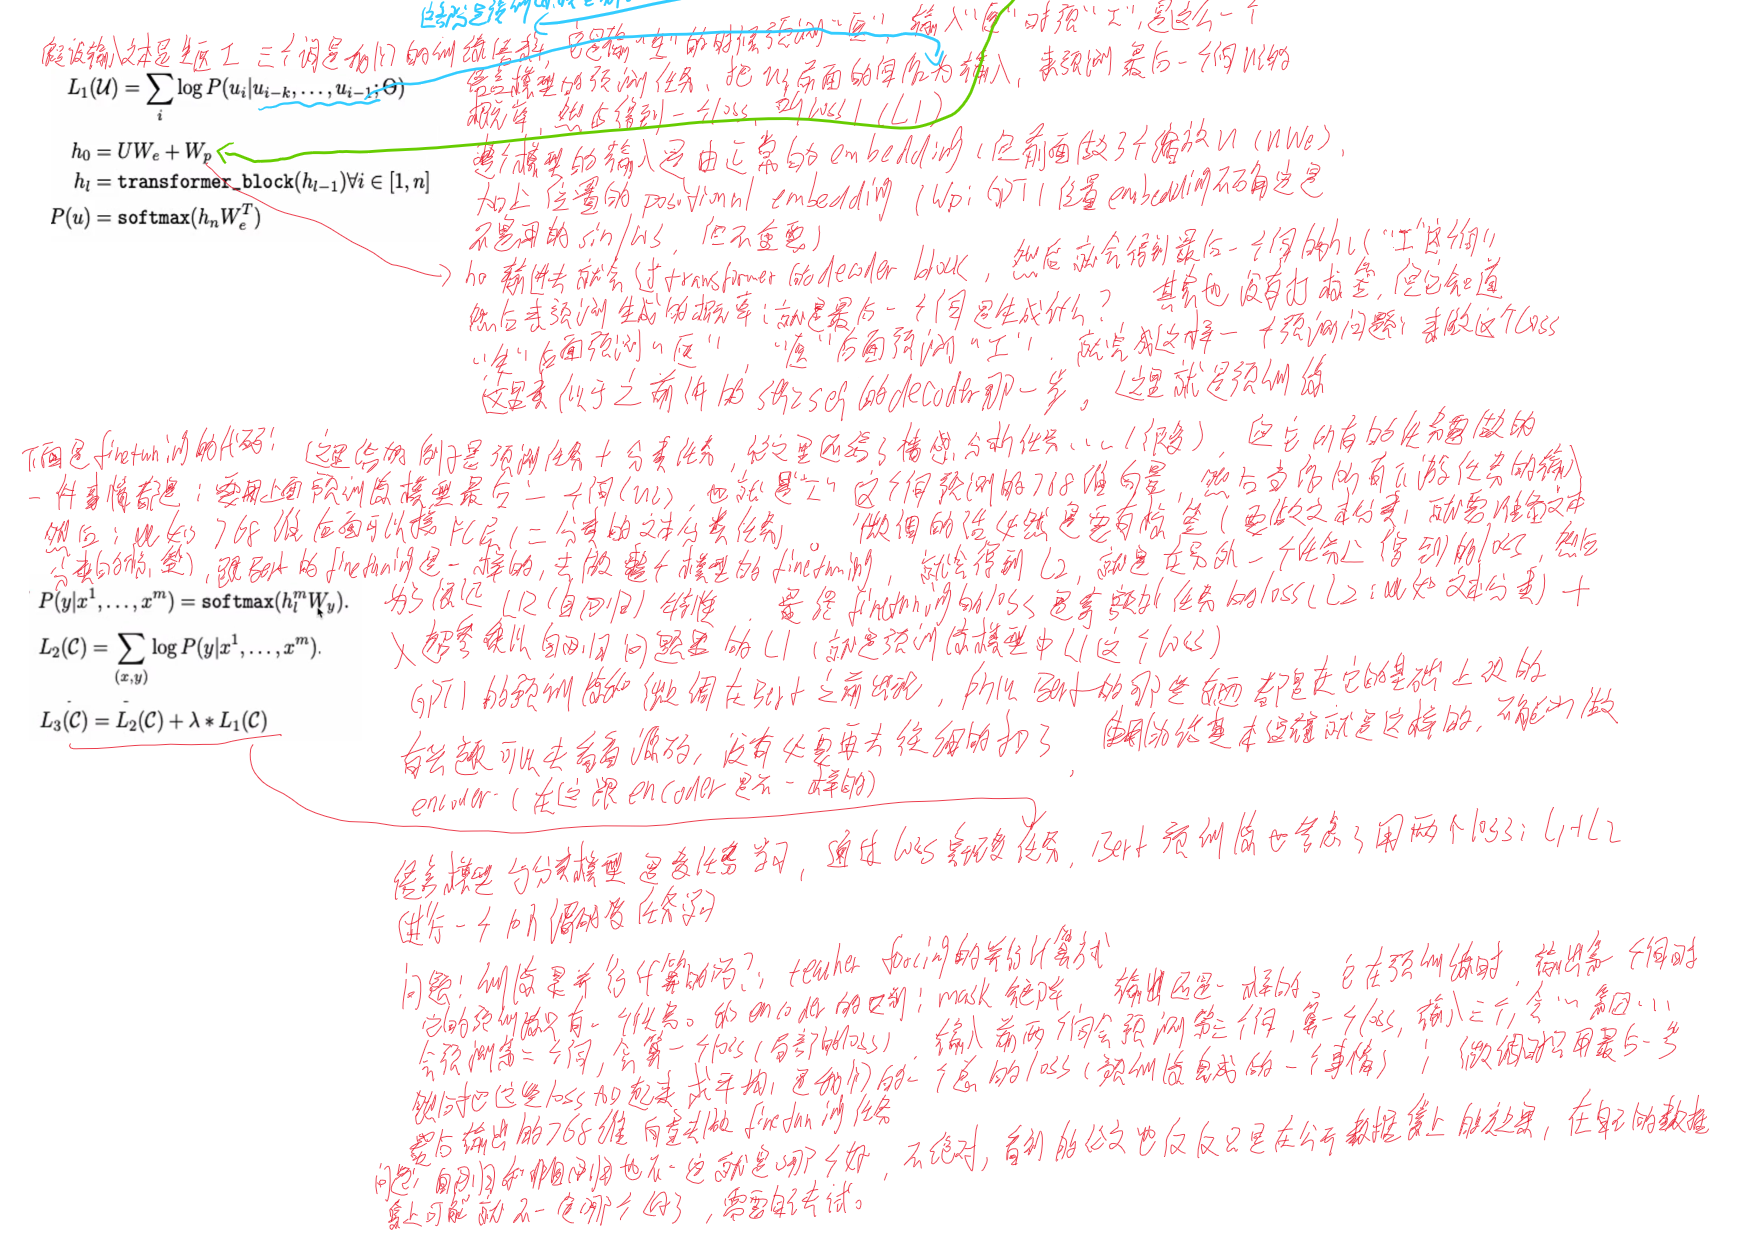 假设输入文本是生医工 三个词是我们的训练语料, 它是输"生"的时候预测"医", 输入"医"时预"工", 是这么一个
语言模型的预测任务, 把Ui前面的单词为输入, 来预测最后一个词Ui的
概率, 然后得到一个loss, 为loss1 (L1)
L₁(𝒰) = ∑ᵢ log P(uᵢ|uᵢ₋ₖ, . . . , uᵢ₋₁; Θ)
h₀ = UWₑ + Wₚ
h_l = transformer_block(h_{l−1})∀i ∈ [1, n]
P(u) = softmax(hₙWₑᵀ)
这个模型的输入是由正常的embedding (但前面做了个缩放U (UWe),
加上位置的positional embedding (Wp: GPT1位置embedding不确定是
不是用的sin/cos, 但不重要)
h0 输进去就会过transformer的decoder block, 然后就会得到最后一个词的hl ("工"这个词)
然后来预测生成的概率: 就是最后一个词是生成什么? 其实也没有打标签, 但它知道
"生"后面预测"医", "医"后面预测"工". 就完成这样一个预测问题: 来做这个loss
这里类似于之前讲的seq2seq的decoder那一步。(这里就是预训练
下面是finetuning的代码: 这里给的例子是预测任务+分类任务, 但它所有的任务要做的
一件事情都是: 要用上面预训练模型最后一个词(Ui), 也就是"工"这个词预测的768维向量, 然后当你所有下游任务的输入
然后: 比如768维后面可以接FC层(二分类的文本分类任务)。 微调的话必然是要有标签(要做文本分类, 就要准备文本
分类的标签), 跟Bert的finetuning是一样的, 去做整个模型的finetuning, 就会得到L2, 就是在另外一个任务上得到的loss, 然后
为了保证LR(自回归)特性 最终finetuning的loss是等于你任务的loss(L2: 比如文本分类) +
λ超参乘以自回归问题里的L1 (就是预训练模型中L1这个loss)
P(y|x¹, . . . , xᵐ) = softmax(h_lᵐW_y).
L₂(𝒞) = ∑₍ₓ,ᵧ₎ log P(y|x¹, . . . , xᵐ).
L₃(𝒞) = L₂(𝒞) + λ ∗ L₁(𝒞)
GPT1的预训练和微调在Bert之前出现, 所以Bert的那些东西都是在它的基础上改的
有兴趣可以去看看源码, 没有必要再去很细的扣了 使用的话基本逻辑就是这样的, 不能叫做
encoder (在这跟encoder是不一样的)
语言模型与分类模型是多任务学习, 通过loss实现多任务, Bert预训练也考虑了用两个loss: L1+L2
进行一个所谓的多任务学习
问题: 训练是并行计算的吗?: teacher forcing的并行计算方式
它的预训练只有一个任务。和encoder的区别: mask矩阵, 输出还是一样的。它在预训练时, 输出第一个词时
会预测第二个词, 会算一个loss (局部的loss); 输入前两个词会预测第三个词, 算一个loss, 输入三个, 会...第四...
然后把这些loss加起来求平均, 是我们的一个总的loss (预训练完成的一个事情); 微调时只用最后一步
最后输出的768维向量去做finetuning任务
问题: 自回归和非自回归也不一定就是哪个好, 不绝对, 看到的论文也仅仅只是在公开数据集上的效果, 在自己的数据
集上可能就不一定哪个好了, 需要自己去试。